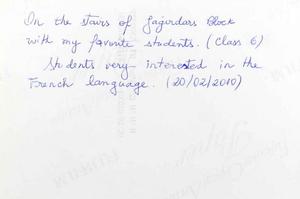 In the stairs of Jagirdars Block
with my favorite students. (Class 6)
Students very interested in the
French language. (20/02/2010)